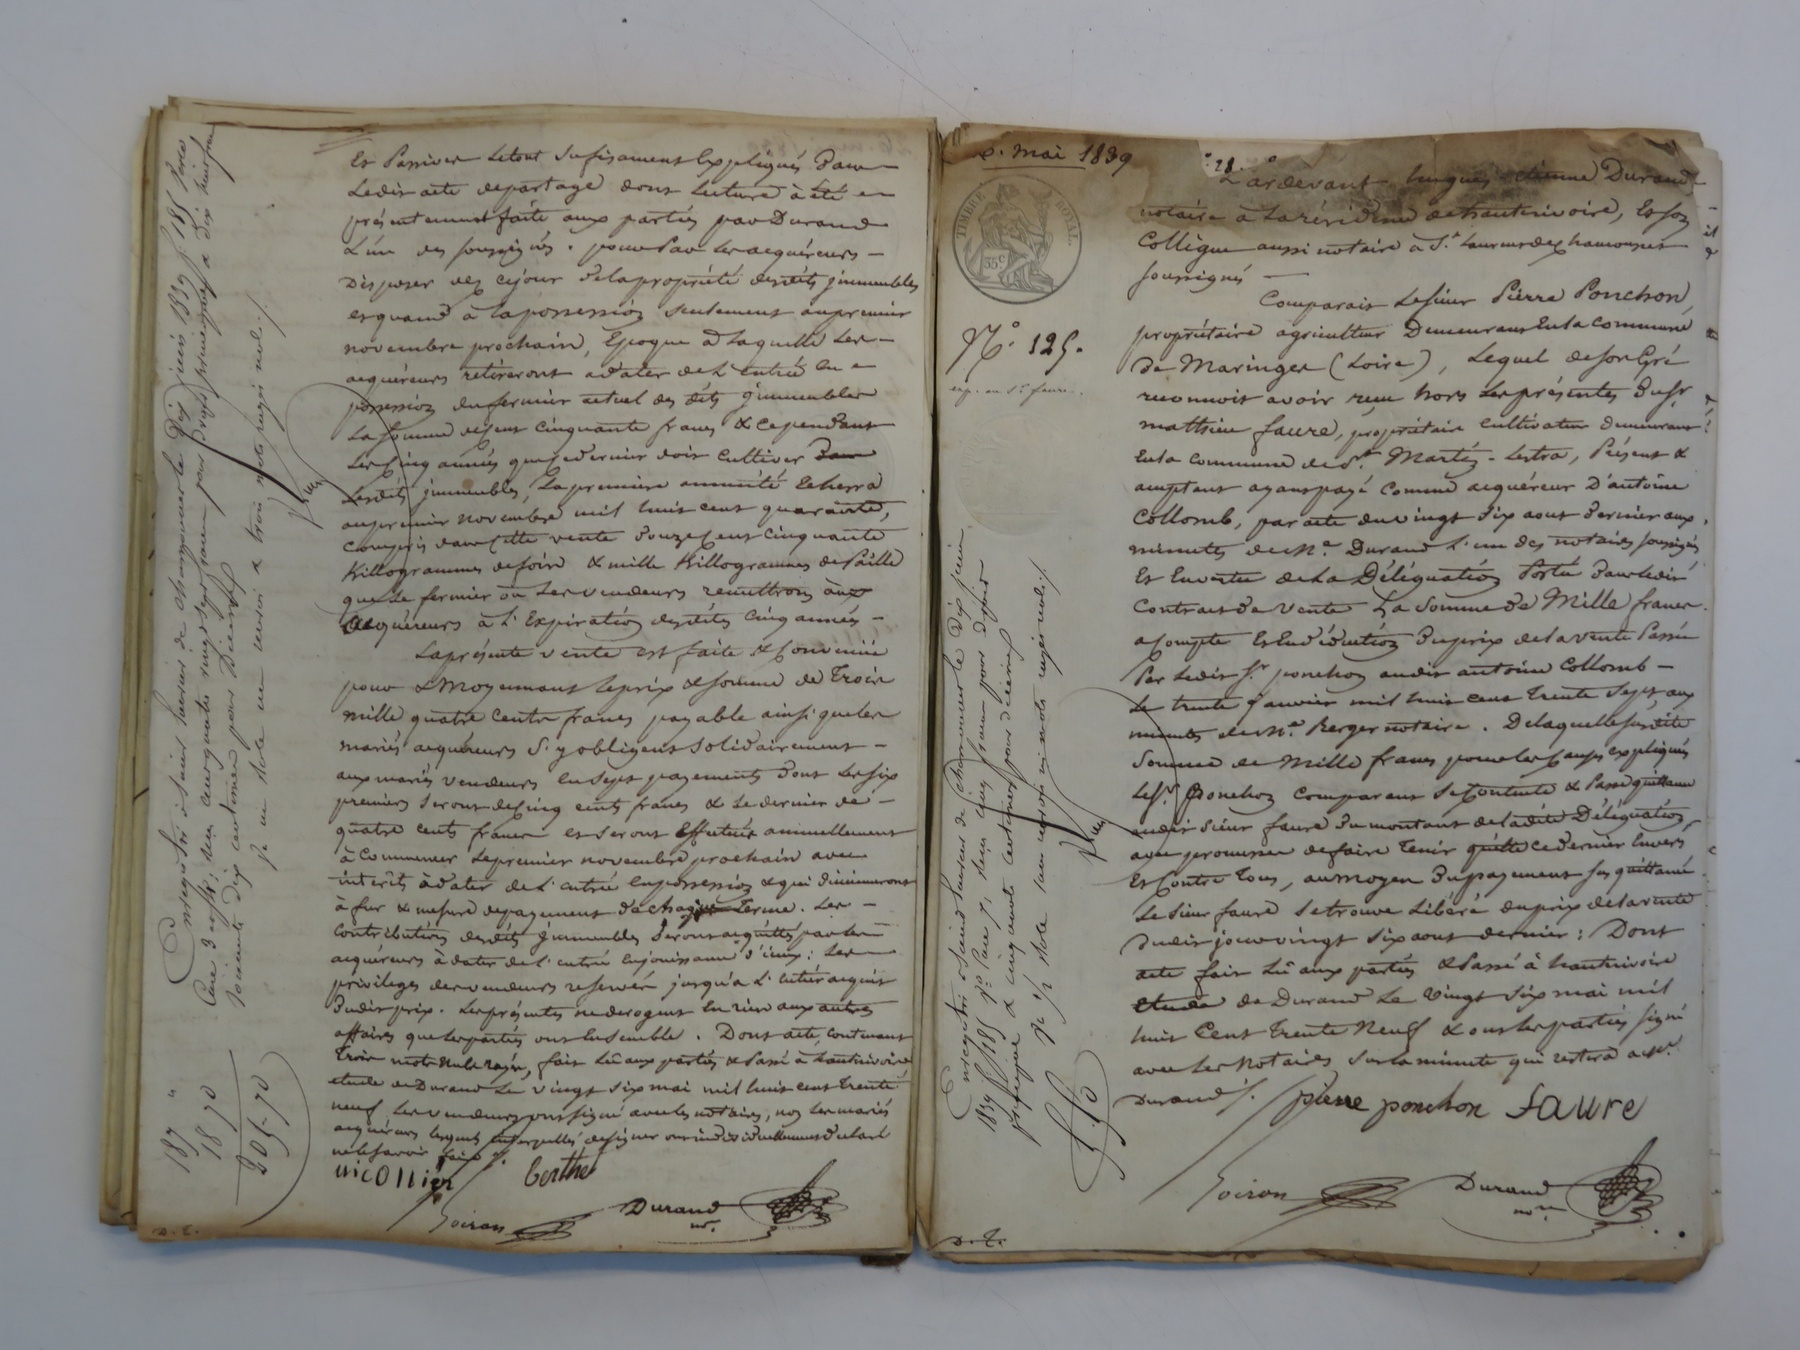 Et Passives Letout Sufisament Expliqués Dans
Ledit acte departage dont Lecture à été
présentement faite aux parties par Durand
L'un des soussignés. pour Par Les acquéreurs
Disposer dez cejour delapropriété desdits jmmeubles
et quand à Lapossession seulement aupremier
novembre prochain, Epoque à Laquelle Les
acquéreurs retireront adater deL'entrée en
possession du fermier actuel des dits jmmeubles
La somme decent cinquante francs & cependant
Les Cinq années que cedernier doit cultiver
Lesdits jmmeubles, La première annuité Echerra
aupremier novembre mil huit cent quarante,
Compris dans Cette vente Douze Cent Cinquante
Killogrammes defoin & mille Killogrammes de Paille
que Le fermier ou Les vendeurs remettront aux
acquéreurs à L'Expiration desdites Cinq années
Laprésente vente est faite & Convenue
pour & Moyennant Leprix & somme de Trois
mille quatre Cents francs payable ainsi queles
mariés acquéreurs S'y obligent Solidairement
aux mariés vendeurs En Sept payements Dont Les six
premiers Seront decinq cents francs & Le dernier de
quatre cents francs et Seront Effectués annuellement
à Commencer Lepremier novembre prochain avec
intérêts àdater de L'entrée Enpossession & qui diminueront
à fur & mesure depayement dechaque terme. Les
Contributions desdits jmmeubles Seront acquittées par Les
acquéreurs à dater de L'entrée Enjouissance d'iceux: Les
privileges des vendeurs reservés jusqu'à L'entier acquit
Dudit prix. Les présentes nederogent En rien aux autres
affaires que Les parties ont Ensemble. Dont acte, contenant
Trois mots nuls rayés, fait Lû aux parties & Passé à hauterivoire
etude de Durand Le vingt Six mai mil huit cent trente
neuf Les vendeurs ont signé avec Les notaires, non Les mariés
acquéreurs Lesquels interpellés designer ont individuellement déclaré
ne Le savoir faire
Nicollier Berthet
Goiran Durand
nre.
D. D.
Enregistré à Saint Laurent de Chamousset le Dix juin 1839 fo 185
187 "
18 70
205-70
26. mai 1839
28.
TIMBRE ROYAL.
35c
No. 125.
exp. au Sr. faure.
Pardevant hugues étienne Durand
notaire à La résidence de hauterivoire, Et son
Collègue aussi notaire à St. Laurent de chamousset
soussignés
Comparait Le sieur Pierre Ponchon,
propriétaire agriculteur Demeurant En la Commune
De Maringes (Loire), Lequel de son Gré
reconnoit avoir reçu hors Les présentes Du Sr.
mathieu faure, propriétaire Cultivateur demeurant
En la Commune de St. Martin-Lestra, Présent &
acceptant ayant payé Comme acquéreur D'antoine
Collomb, par acte du vingt Six aout Dernier aux
minutes de Me. Durand L'un des notaires soussignés
Et En vertu de La Délégation Portée Dans Ledit
Contrat de vente La Somme de Mille francs
acompte Et En déduction Du prix de la vente Passée
Par Ledit Sr. ponchon audit antoine Collomb
Le trente janvier mil huit cent Trente Sept, aux
minutes de Me. Berger notaire. De Laquelle susdite
Somme de Mille francs pour Les Causes expliquées
Le Sr. Ponchon Comparant Se Contente & Passe quittance
audit sieur faure Du montant de Ladite Délégation,
avec promesse de faire Tenir quitte ce dernier Envers
Et Contre Tous, au moyen Du payement sus quittancé
Le Sieur faure Se trouve Libéré du prix de la vente
Dudit jour vingt Six aout dernier: Dont
acte fait Lû aux parties & Passé à hauterivoire
Etude de Durand Le Vingt Six mai mil
huit Cent Trente Neuf & ont Les parties signé
avec Les Notaires Sur La minute qui restera à Me.
Durand
pierre ponchon faure
Goiran Durand
nre.
D. D.